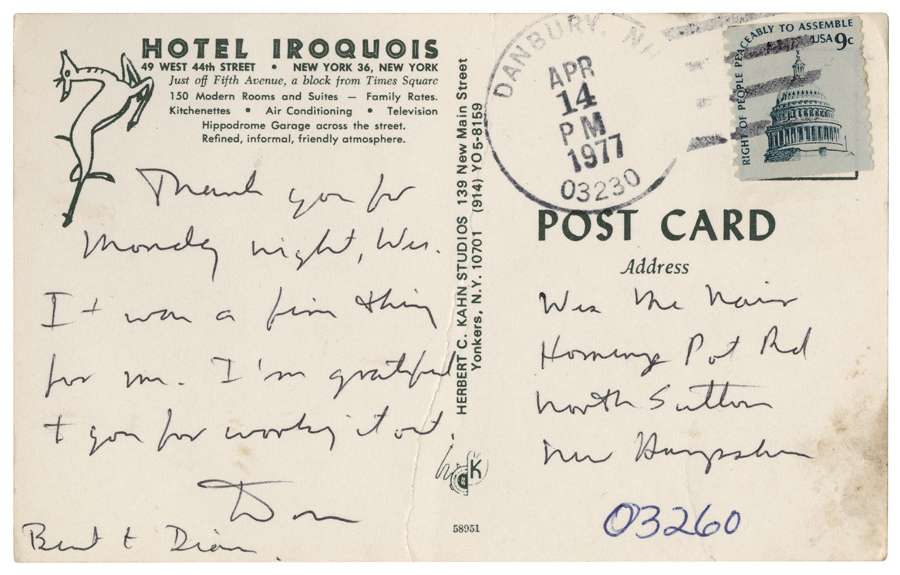 HOTEL IROQUOIS
49 WEST 44th STREET • NEW YORK 36, NEW YORK
Just off Fifth Avenue, a block from Times Square
150 Modern Rooms and Suites — Family Rates.
Kitchenettes • Air Conditioning • Television
Hippodrome Garage across the street.
Refined, informal, friendly atmosphere.
Thank you for
Monday night, Wes.
It was a fine thing
for me. I'm grateful
to you for working it out.
Don
HERBERT C. KAHN STUDIOS 139 New Main Street
Yonkers, N.Y. 10701 (914) YO 5-8159
hck
58951
DANBURY, N
APR
14
PM
1977
03230
RIGHT OF PEOPLE PEACEABLY TO ASSEMBLE
USA 9c
POST CARD
Address
Wes McNair
Homing Pot Rd
North Sutton
New Hampshire
03260